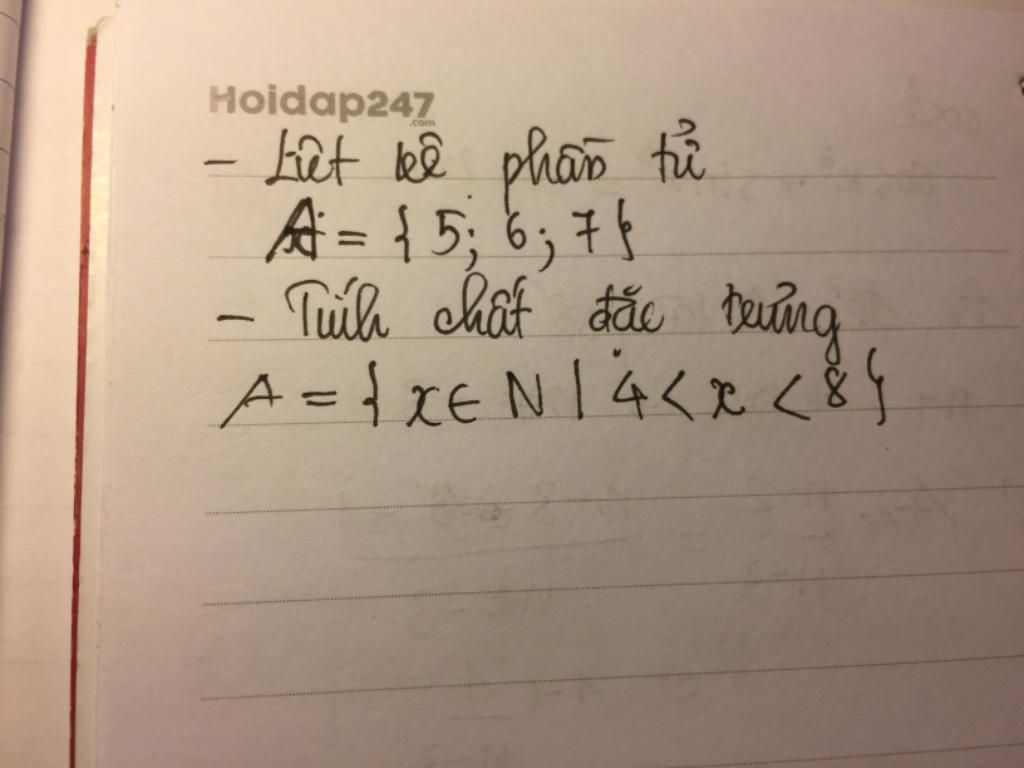 Hoidap247
.com
- Liêt kê phần tử
A = { 5; 6; 7 }
- Tính chất đặc trưng
A = { x ∈ N | 4 < x < 8 }